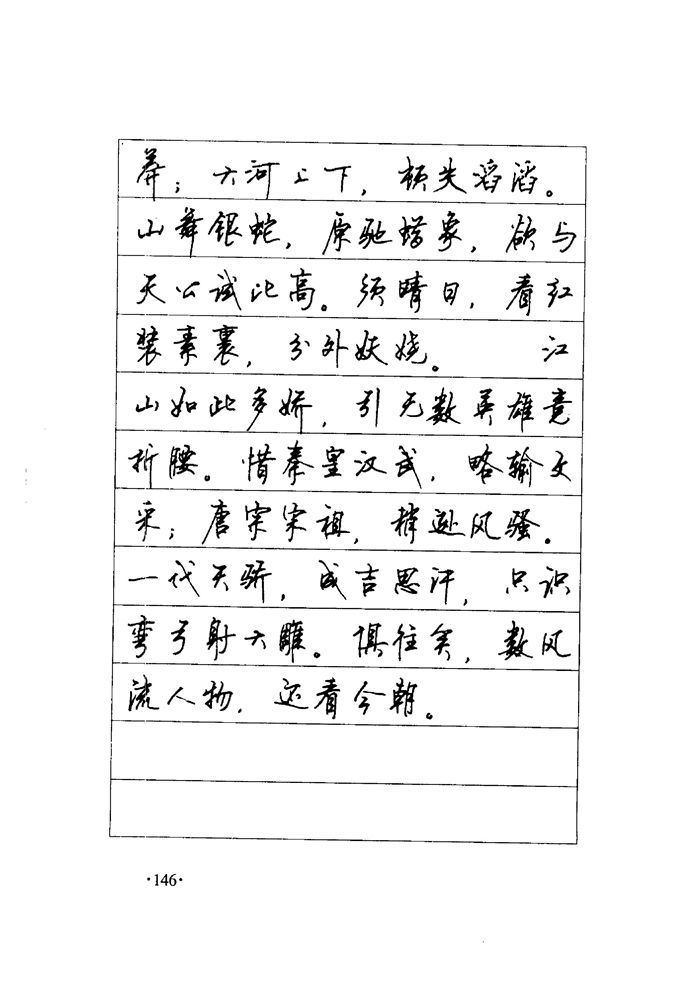 莽；大河上下，顿失滔滔。
山舞银蛇，原驰蜡象，欲与
天公试比高。须晴日，看红
装素裹，分外妖娆。　　江
山如此多娇，引无数英雄竟
折腰。惜秦皇汉武，略输文
采；唐宗宋祖，稍逊风骚。
一代天骄，成吉思汗，只识
弯弓射大雕。俱往矣，数风
流人物，还看今朝。
·146·